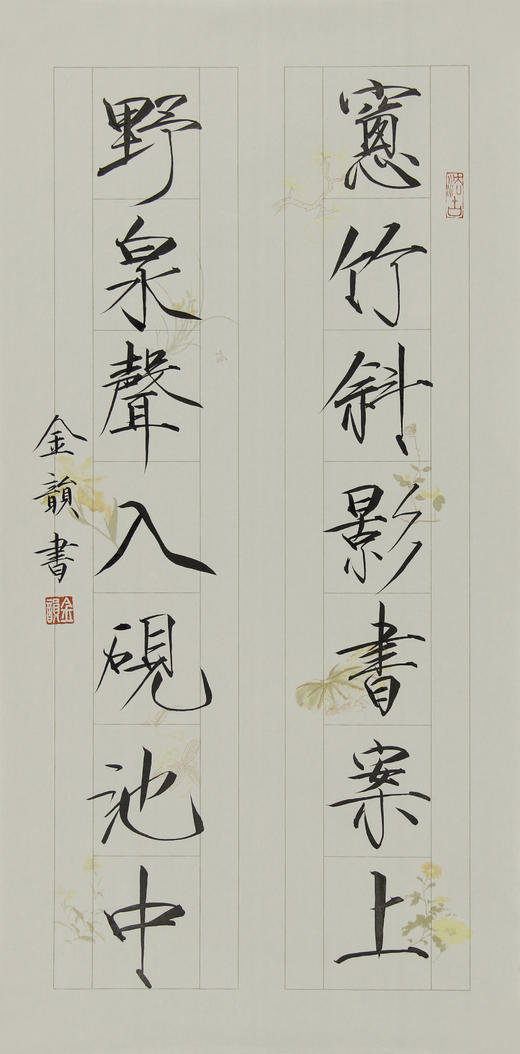 窻竹斜影書案上
野泉聲入硯池中
金韻書
金韻